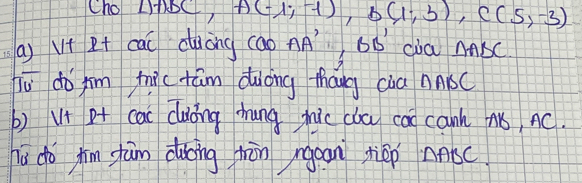 Cho ΔABC, A(-1; -1), B(1; 3), C(5; -3)
a) Vt Pt các đường cao AA', BB' của ΔABC.
Từ đó tìm trực tâm đường thẳng của ΔABC
b) Vt Pt các đường trung trực của các cạnh AB, AC.
Từ đó tìm tâm đường tròn ngoại tiếp ΔABC.